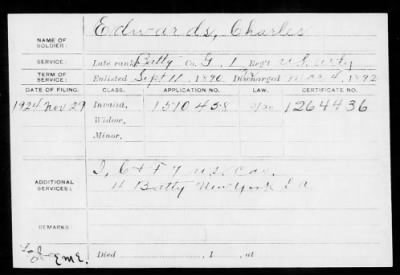 Edwards, Charles
NAME OF SOLDIER:
SERVICE: Late rank, Batty Co. G, 1 Reg't U.S. Arty
TERM OF SERVICE: Enlisted Sept 11, 1890 Discharged Mar 4, 1892
DATE OF FILING. CLASS. APPLICATION NO. LAW. CERTIFICATE NO.
1924 Nov 29 Invalid, 1510458 1264436
Widow,
Minor,
ADDITIONAL SERVICES: I, C & F 7 U.S. Cav.
H Batty New York L A
REMARKS:
EME. Died , 1 , at